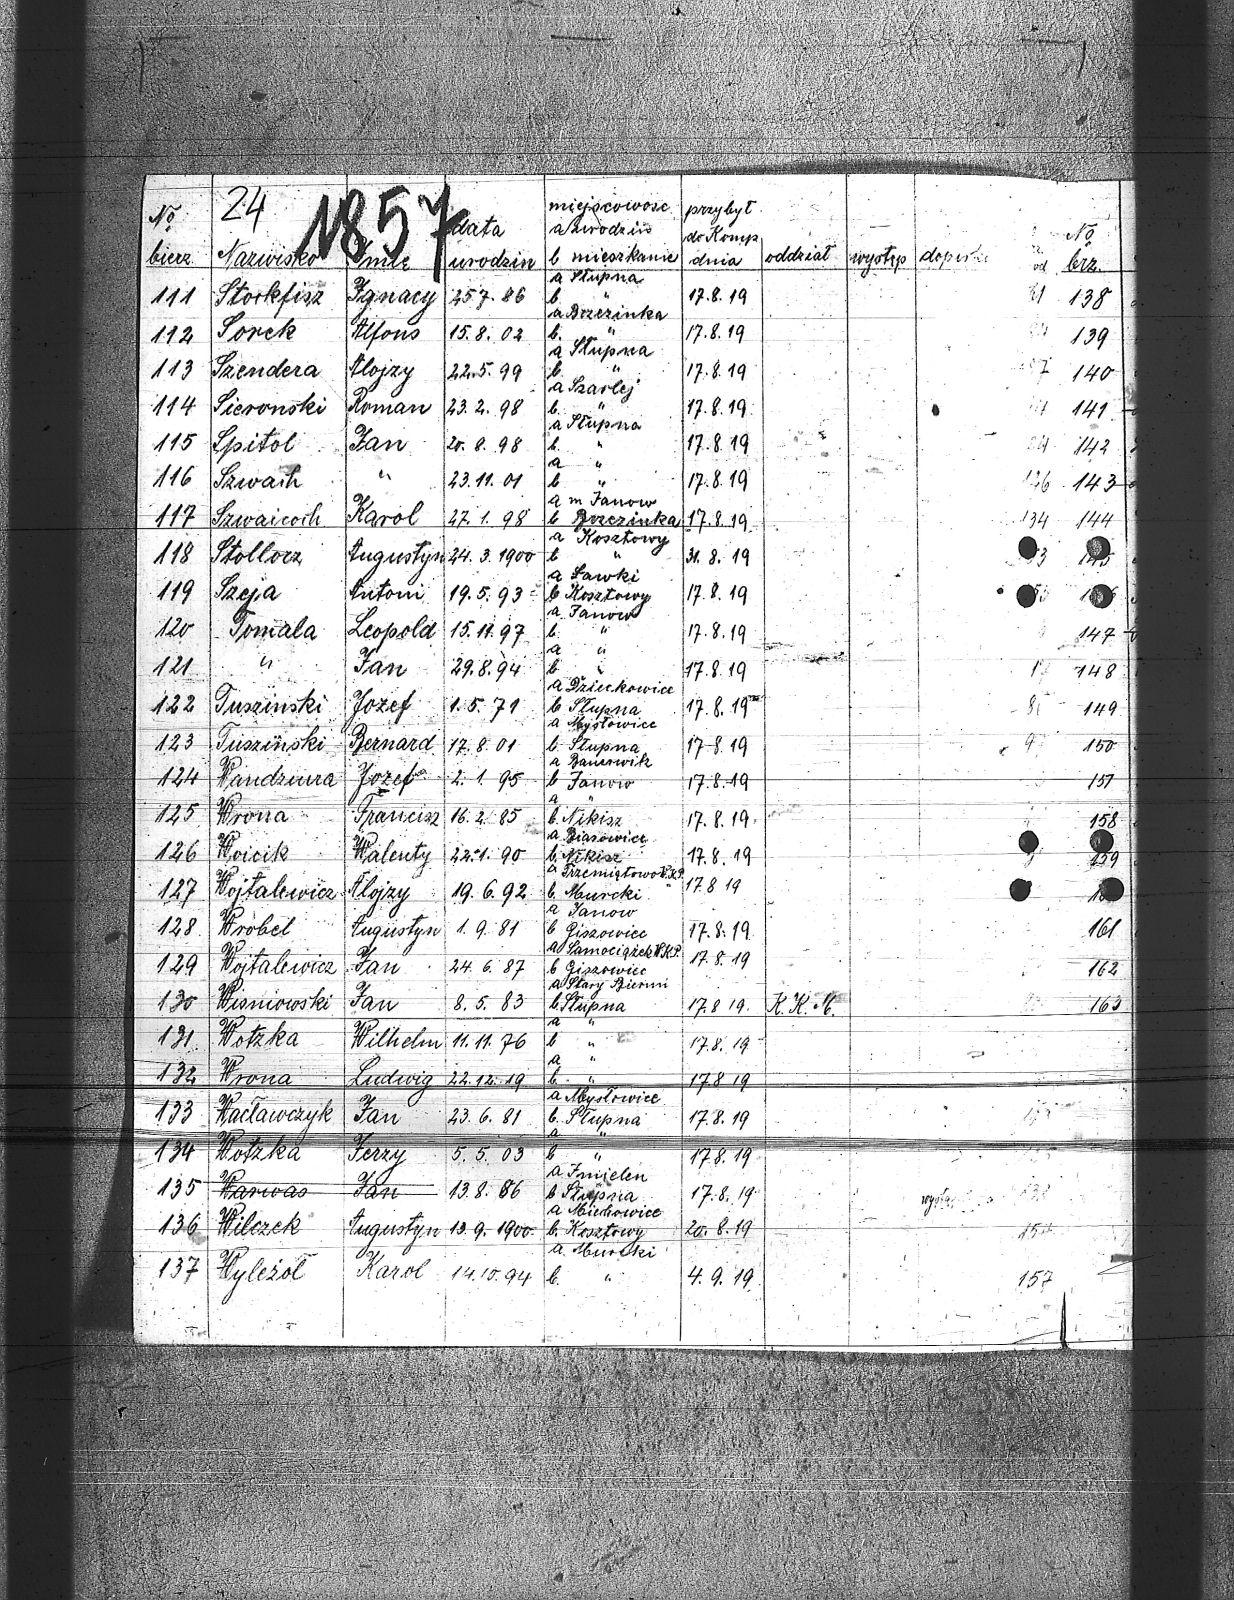 24
1857
No bierz Nazwisko Imię data urodzin miejscowość a Urodzin b mieszkanie przybył do Komp dnia oddział występ No brz.
a Słupna
111 Stockfisz Ignacy 25 7. 86 b " 17.8.19 138
a Brzezinka
112 Sorek Alfons 15. 8. 02 b. " 17.8.19 139
a Słupna
113 Szendera Alojzy 22.5. 99 b " 17.8.19 140
a Szarlej
114 Sieronski Roman 23. 2. 98 b " 17.8.19 141
a Słupna
115 Spitol Jan 20. 8. 98 b " 17.8.19 142
a "
116 Szwach " 23.11. 01 b " 17.8.19 143
a m Janow
117 Szwaicoch Karol 27. 1. 98 b Brzezinka 17.8.19 134 144
a Kosztowy
118 Stollorz Augustyn 24. 3. 1900 b " 31. 8. 19
a Ławki
119 Szeja Antoni 19. 5. 93 b Kosztowy 17.8.19
a Janow
120 Tomala Leopold 15.11.97 b " 17.8.19 147
a "
121 " Jan 29.8.94 b " 17.8.19 148
a Dzieckowice
122 Tuszinski Jozef 1. 5. 71 b Słupna 17.8.19 149
a Mysłowice
123 Tuszinski Bernard 17. 8. 01 b Słupna 17.8.19 150
a
124 Wandziura Jozef 2. 1. 95 b Janow 17.8.19 151
a "
125 Wrona Francisz 16. 2. 85 b Nikisz 17.8.19 158
a
126 Woicik Walenty 22.1. 90 b Nikisz 17.8.19 159
a
127 Wojtalewicz Alojzy 19. 6. 92 b Murcki 17 8 19
a Janow
128 Wrobel Augustyn 1. 9. 81 b Giszowiec 17.8.19 161
a Samociążek W.K.P.
129 Wojtalewicz Jan 24. 6. 87 b Giszowiec 17.8.19 162
a Stary Bierun
130 Wisniowski Jan 8. 5. 83 b Słupna 17.8 19. K. K. M. 163
a "
131 Wotzka Wilhelm 11. 11. 76 b " 17.8. 19
a "
132 Wrona Ludwig 22.12.19 b " 17.8 19
a Mysłowice
133 Wacławczyk Jan 23. 6. 81 b Słupna 17.8.19
a "
134 Wotzka Jerzy 5. 5. 03 b " 17.8.19
a Imielen
135 Warwas Jan 13.8. 86 b Słupna 17.8.19
a Miechowice
136 Wilczek Augustyn 13. 9. 1900 b. Kosztowy 20. 8. 19
a Murcki
137 Wyleżoł Karol 14.10.94 b " 4. 9. 19. 157